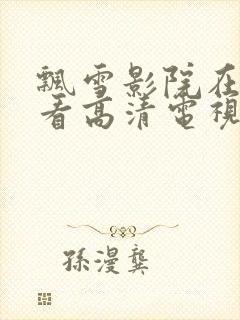 飄雪影院在
看高清電視
孫漫龔